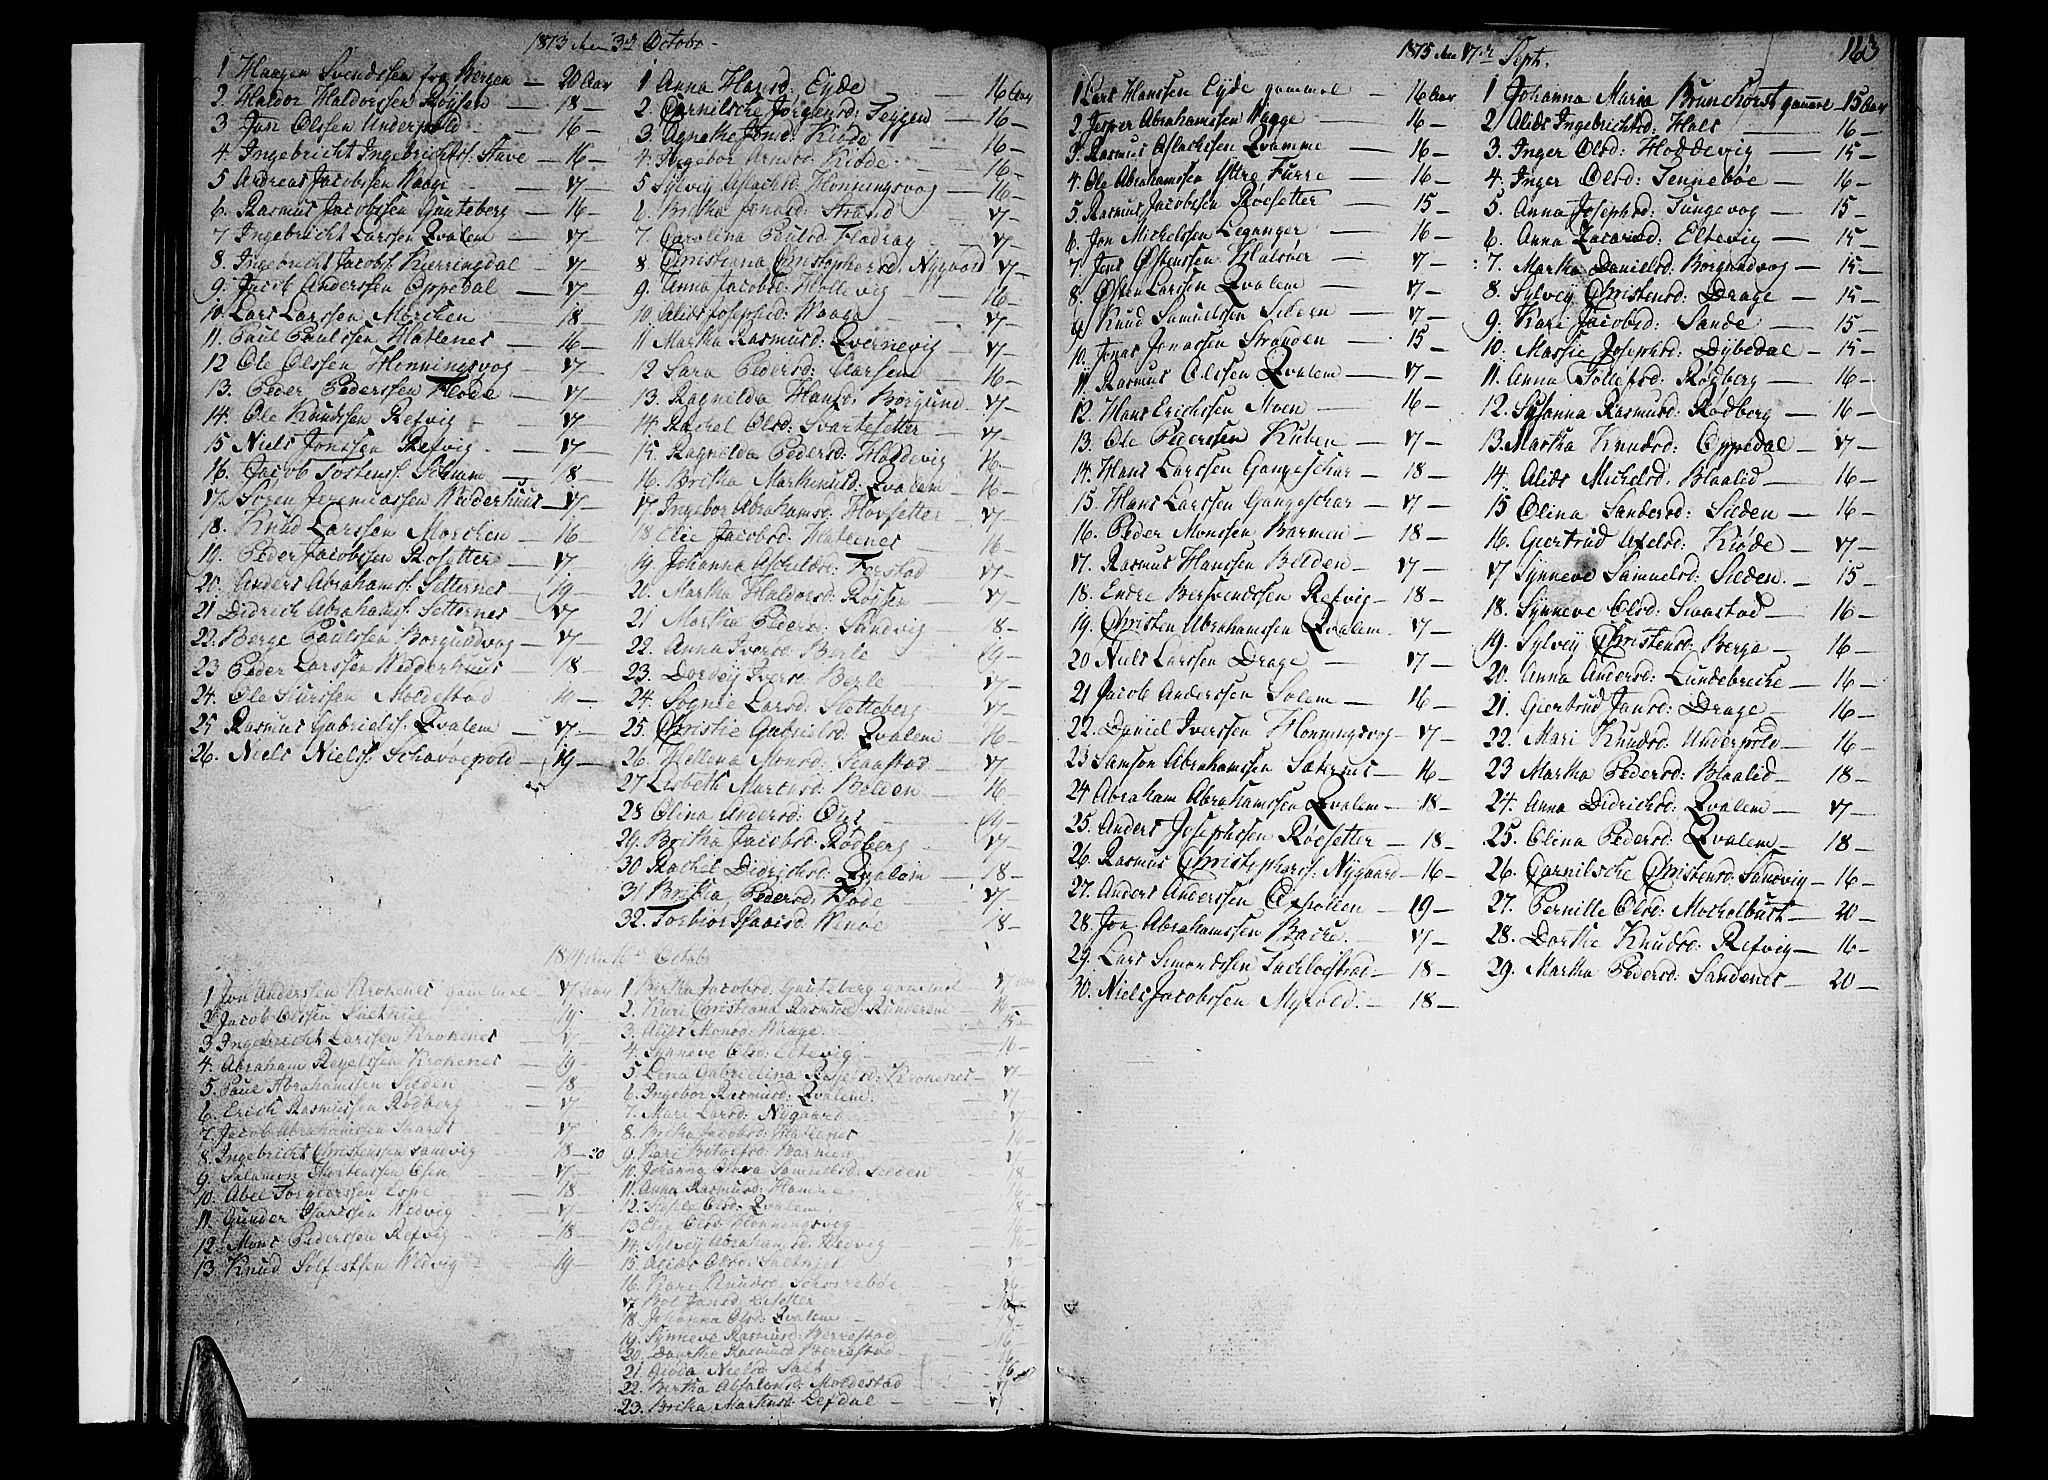 1813 den 3d Octobr
1 Haagen Svendssen fra Bergen — 20 Aar
2. Haldor Haldorssen Røysen — 18 —
3 Jon Olssen Underpold — 16 —
4. Ingebricht Ingebrichtss. Stave — 16 —
5 Andreas Jacobssen Waage — 17 —
6. Rasmus Jacobssen Gunteberg — 16 —
7 Ingebricht Larssen Qvalem — 17 —
8. Ingebricht Jacobs. Kierringdal — 17 —
9. Jacob Anderssen Oppedal — 17 —
10. Lars Larssen Morchen — 18 —
11. Paul Paulssen Hatlenes — 16 —
12 Ole Olssen Honningsvog — 17 —
13. Peder Pederssen Flode — 17 —
14. Ole Knudssen Refvig — 17 —
15 Niels Jonssen Refvig — 17 —
16. Jacob Tostens. — 18 —
17. Søren Jeremiassen Wedderhuus — 17 —
18. Knud Larssen Morchen — 16
19. Peder Jacobssen Rosetter — 17
20. Anders Abrahams. Setternes — 19 —
21 Didrich Abrahams. Setternes — 17
22. Børge Paulssen Borgundvog — 17 —
23 Peder Larssen Wedderhuus — 18
24. Ole Moldestad
25 Rasmus Gabriels. Qvalem — 17 —
26. Niels Niels. Schavøepold — 19 —
1 Anna Hansd: Eyde — 16 Aar
2. Carnilsche Jørgensd: Seggen — 16 —
3. Agnethe Jonsd: Kiøde — 16 —
4. Ingebor Arnesd: Kiøde — 16 —
5 Sylvey Aslachsd: Honningsvog — 16 —
6. Britha Jonasd: Strand — 17 —
7. Carolina Paulsd: Fladrag — 17 —
8 Christiana Christophersd. Nygaard 17 —
9. Anna Jacobsd: Hollevig — 16 —
10. Alids Josephsd: Waage — 17 —
11 Martha Rasmusd: Qvernevig — 17 —
12 Sara Pedersd: Aarsem — 16 —
13. Ragnelda Hansd. Borgund — 17 —
14. Rachel Olsd: Svartesetter — 17 —
15. Ragnelda Pedersd: Hoddevig 16 —
16. Britha Marthinusd: Qvalem — 16 —
17 Ingebor Abrahamsd: Hovsetter — 17 —
18 Elie Jacobsd: Hatlenes — 16
19. Johanna Ascheldsd: Forstad — 17 —
20. Martha Haldorsd: Røssen — 17 —
21 Martha Pedersd: Sandvig — 18 —
22. Anna Iversd: Berle — 19 —
23. Dordey Iversd: Berle — 17 —
24. Sognie Larsd: Slotteberg — 17 —
25. Christie Gabrielsd: Qvalem 16 —
26. Hellena Monsd: Staastad — 17 —
27 Lisbeth Martusd: Belden — 16 —
28 Olina Andersd: — 19 —
29. Britha Jacobsd: Rødberg — 17 —
30 Rachel Didrichsd: Qvalem — 18 —
31 Britha Pedersd: Flode — 17 —
32. Torbior Isaacsd: Wenøe — 18 —
1814 den 16 Octobr
1 Jon Anderssen Krokenes gammel — 17 Aar
2. Jacob Olssen Saltriet — 19 —
3 Ingebrecht Larssen Krokenes — 17
4. Abraham Krokenes — 19 —
5. Paul Abrahamssen Silden — 18
6. Erich Rasmussen Rødberg — 17
7. Jacob Abrahamssen — 17
8. Ingebricht Christenssen Sandvig — 18 — 20
9. Salamon — 17 —
10. Abel Torgierssen Espe — 18
11. Gunder Isaacssen Wedvig — 17 —
12. Mons Pederssen Refvig — 18
13. Knud Solfestsen Wedvig — 19
1 Britha Jacobsd. Gunteberg gammel — 17 Aar
2. Kari Christiana Rasmusd: Runderem 16 —
3. Alids Monsd: Waage — 15 —
4. Synneve Olsd: Eltevig — 16 —
5. Lena Gabrielina Krokenes — 17 —
6. Ingebor Rasmusd: Qvalem — 17
7. Mari Larsd: Nygaard — 17
8. Britha Jacobsd: Hatlenes — 16
9. Kari Barmen
10. Johanna Olava Samuelsd: Silden — 18
11. Anna Rasmusd: Hamre
12. Olsd: Qvalem — 18
13 Elie Olsd: Honningsvog — 16
14. Sylvey Abrahamsd: Wedvig — 16
15. Alids Olsd: Saltriet
16. Kari Knudsd. — 16
17 Jonsd: — 16
18. Johanna Olsd: Qvalem
19. Synneve Rasmusd: Berrestad — 16
20. Daarthe Rasmusd: Berrestad
21 Nielsd Salt — 16
22. Britha Moldestad — 17
23. Britha Martinusd Lefdal — 17
1815 den 17de Sept.
163
1 Lars Hanssen Eyde gammel — 16 Aar
2. Jesper Abrahamssen Waage — 16 —
3. Rasmus Aslachssen Qvamme — 16 —
4. Ole Abrahamssen Ytre Furre — 16 —
5. Rasmus Jacobssen Røesetter — 15 —
6. Jon Michelssen Leganger — 16 —
7. Jens Østenssen Halsøer — 17 —
8. Østen Larssen Qvalem — 17 —
9 Knud Samuelssen Silden — 17 —
10. Jonas Jonassen Stranden — 15 —
11. Rasmus Olssen Qvalem — 17 —
12. Hans Erichssen Moen — 16 —
13. Ole Pederssen Kulen — 17 —
14. Hans Larssen Gangeschar — 18 —
15. Hans Larssen Gangeschar — 17 —
16. Peder Monssen Barmen — 18 —
17. Rasmus Hanssen Belden — 17 —
18. Endre Bersvendssen Refvig — 18 —
19. Christen Abrahamssen Qvalem — 17 —
20 Niels Larssen Drage — 17 —
21 Jacob Anderssen Solem — 16 —
22. Daniel Iverssen Honningsvog — 17 —
23 Samson Abrahamssen Saternes — 16 —
24 Abraham Abrahamssen Qvalem — 18 —
25. Anders Josephssen Røesetter — 18 —
26. Rasmus Christophers. Nygaard — 16 —
27. Anders Anderssen — 19 —
28. Jon Abrahamssen Bache — 17 —
29. Lars Simondssen — 18 —
30. Niels Jacobssen Myrold — 18 —
1 Johanna Maria Brunchorst gammel — 15 Aar
2 Alids Ingebrichtsd: Hals — 16 —
3. Inger Olsd: Hoddevig — 15 —
4. Inger Olsd: Sennebøe — 16 —
5. Anna Josephsd: Tungevog — 15 —
6. Anna Zacarisd: Eltevig — 15 —
7. Martha Danielsd: Borgundvog — 15 —
8. Sylvey Christensd: Drage — 15 —
9. Kari Jacobsd: Sande — 15 —
10. Massie Josephsd: Dybedal — 15 —
11. Anna Tollefsd: Rødberg — 16 —
12. Susanna Rasmusd: Rødberg — 16 —
13. Martha Knudsd: Oppedal — 17 —
14. Alids Michelsd: Blaalid — 16 —
15 Olina Sandersd: Silden — 16 —
16. Giertrud Axelsd: Kiøde — 17 —
17 Synneve Samuelsd: Silden — 15 —
18. Synneve Olsd: Staastad — 16 —
19. Sylvey Christensd: Berge — 16 —
20. Anna Andersd: Lundebreche — 16 —
21. Giertrud Jansd: Drage — 16 —
22. Mari Knudsd: Underpold — 16 —
23 Martha Pedersd: Blaalid — 18 —
24. Anna Didrichsd: Qvalem — 17 —
25. Olina Pedersd: Qvalem — 18 —
26. Carnilsche Christensd: Sandvig — 16 —
27. Pernille Olsd: Mochelbust — 20 —
28. Dorthe Knudsd: Refvig — 16 —
29. Martha Pedersd: Sandenes — 20 —